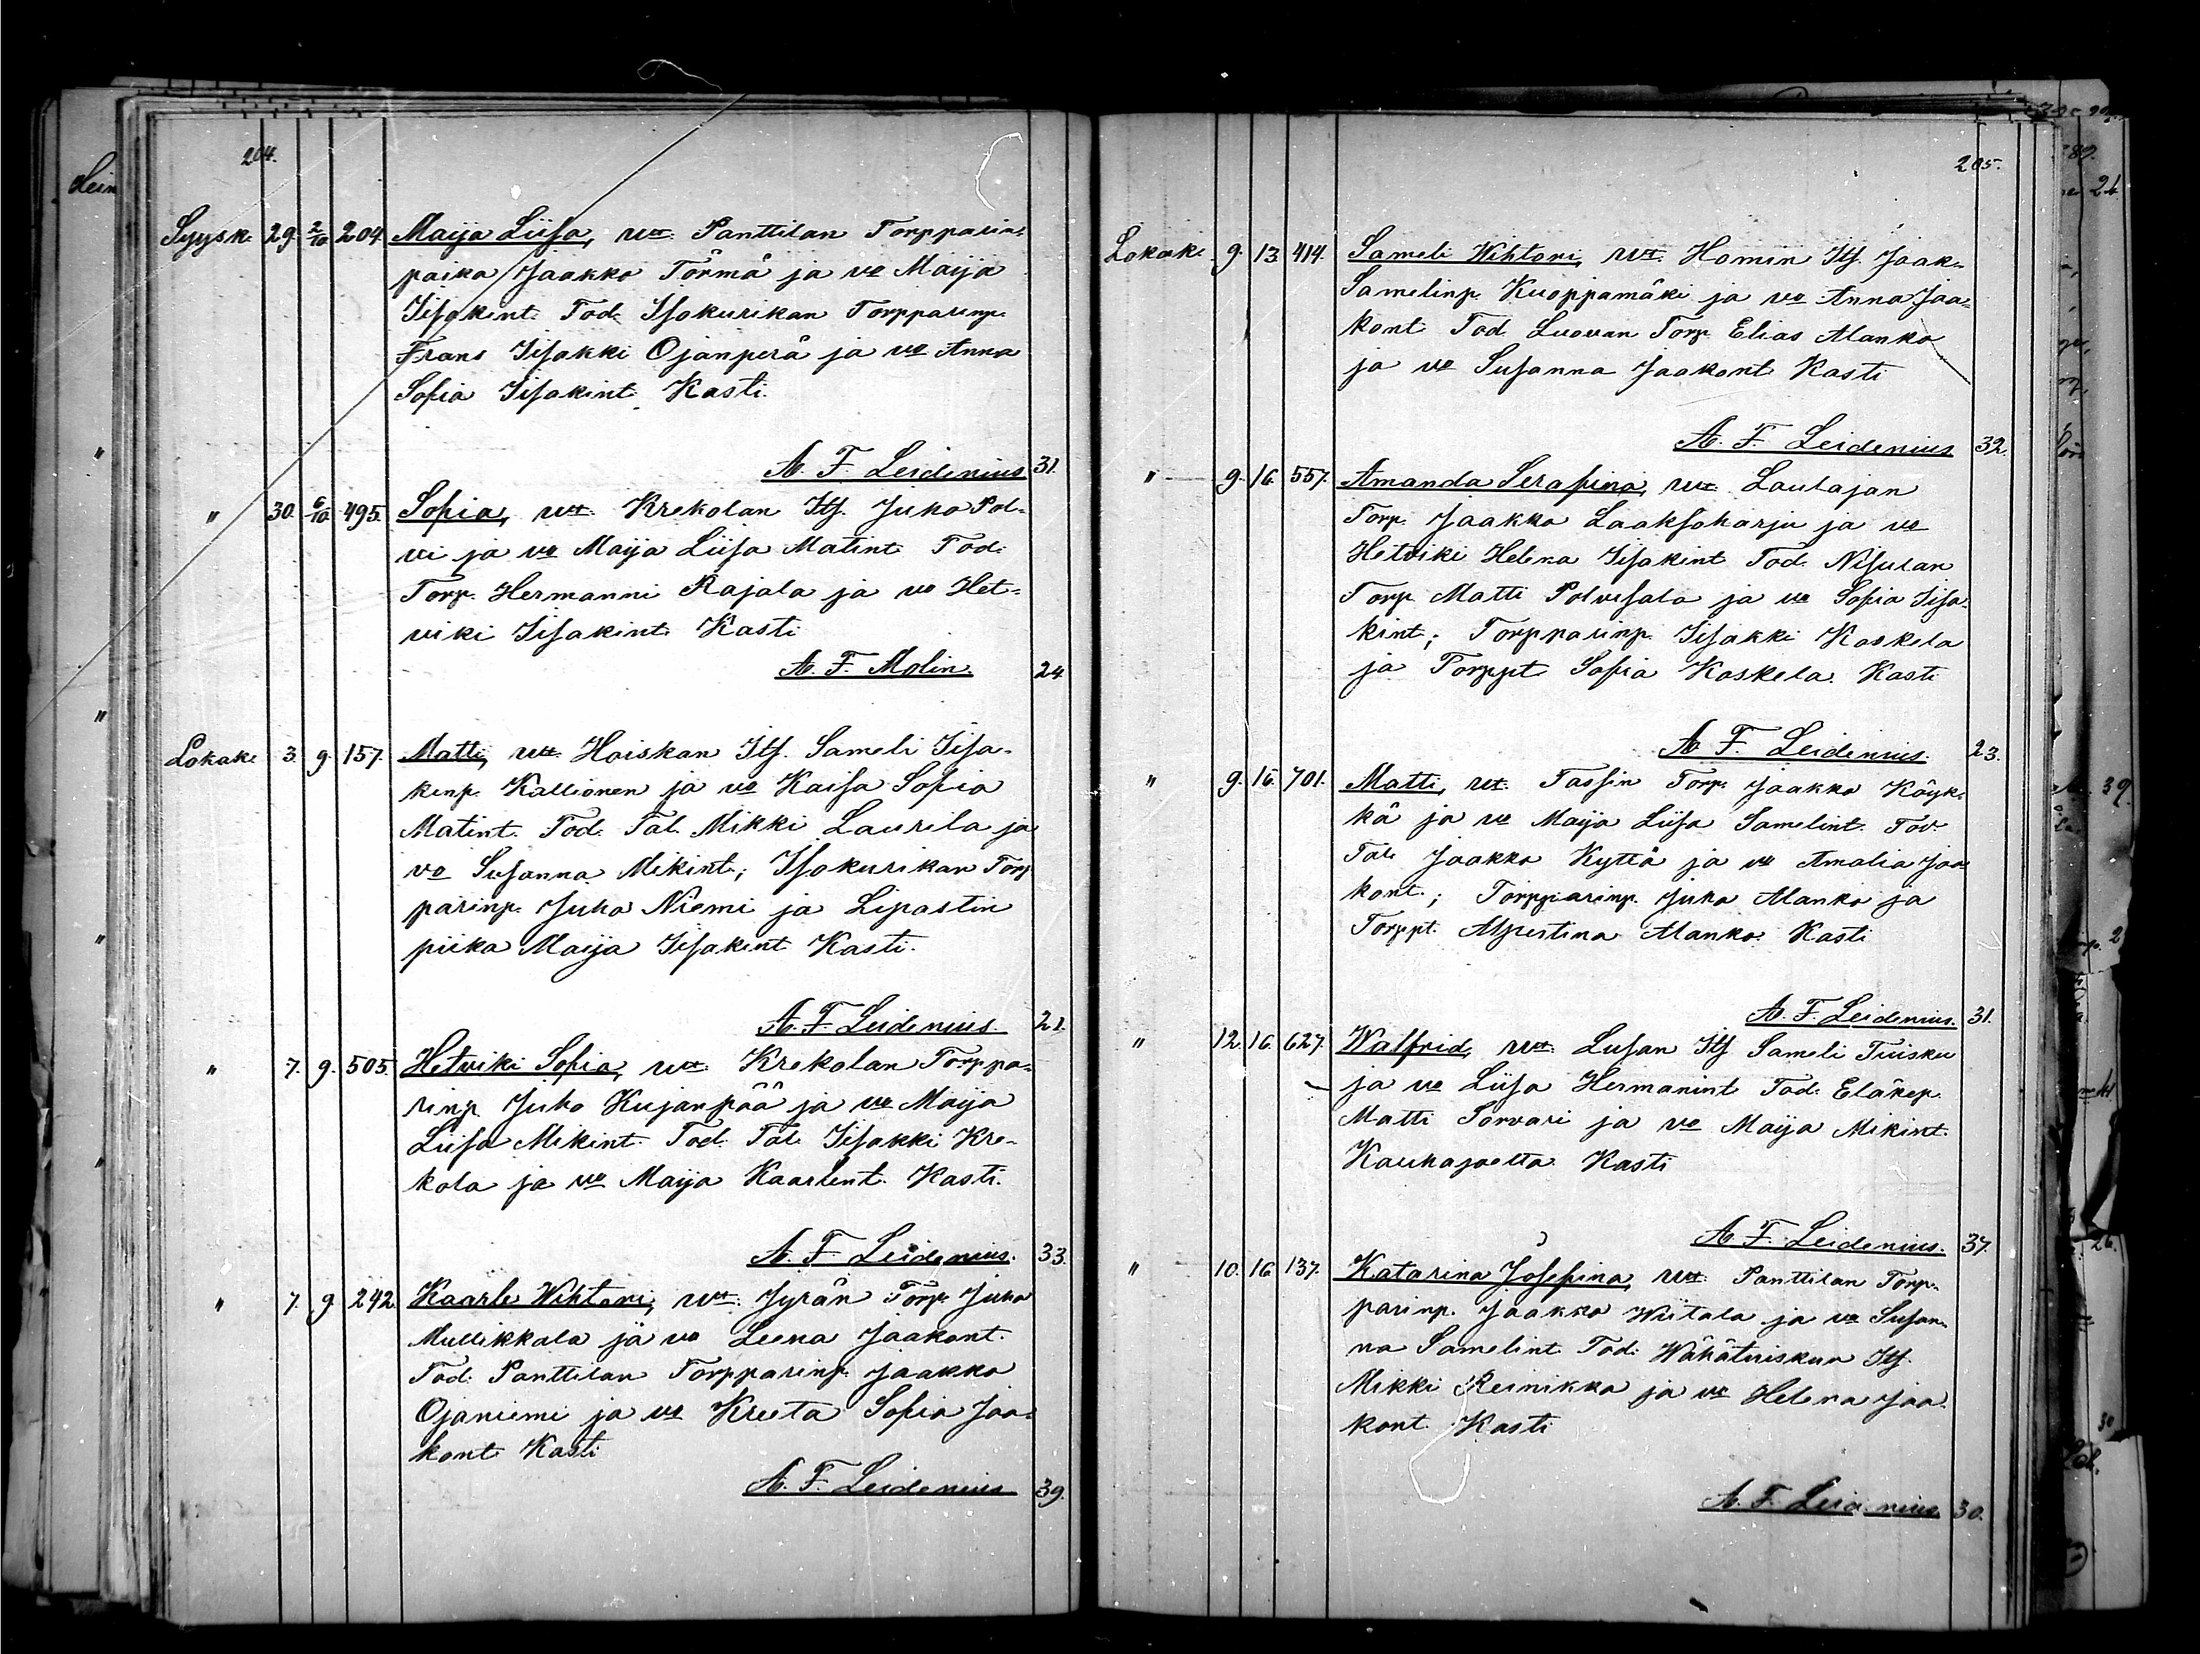 204.
Syysk. 29. 2/10 204. Maija Liisa, vt. Panttilan Torpparin-
poika Jaakko Törmä ja vo Maija
Iisakint. Tod. Isokurikan Torpparinp.
Frans Iisakki Ojanperä ja vo Anna
Sofia Iisakint. Kasti.
A. F. Leidenius 31.
" 30. 6/10 495. Sofia, vt. Krekolan Its. Juho Pol-
vi ja vo Maija Liisa Matint. Tod.
Torp. Hermanni Rajala ja vo Het-
viki Iisakint. Kasti
A. F. Molin. 24.
Lokak. 3. 9. 157. Matti, vt. Haiskan Its. Sameli Iisa-
kinp. Kallionen ja vo Kaisa Sofia
Matint. Tod. Tal. Mikki Laurila ja
vo Susanna Mikint.; Isokurikan Torp
parinp. Juho Niemi ja Lipastin
piika Maija Iisakint. Kasti.
A. F. Leidenius. 21.
" 7. 9. 505. Hetviki Sofia, vt. Krekolan Torppa-
rinp. Juho Kujanpää ja vo Maija
Liisa Mikint. Tod. Tal. Iisakki Kre-
kola ja vo Maija Kaarlent. Kasti.
A. F. Leidenius. 33.
" 7. 9. 242. Kaarle Wihtori, vt. Jyrän Torp. Juho
Mullikkala ja vo Leena Jaakont.
Tod. Panttilan Torpparinp. Jaakko
Ojaniemi ja vo Kreeta Sofia Jaa-
kont. Kasti
A. F. Leidenius 39.
205.
Lokak. 9. 13. 414. Sameli Wihtori, vt. Homin Its. Jaak.
Samelinp. Kuoppamäki ja vo Anna Jaa-
kont. Tod Luovan Torp. Elias Alanko
ja vo Susanna Jaakont. Kasti
A. F. Leidenius 32.
" 9. 16. 557. Amanda Serafina, vt. Laulajan
Torp. Jaakko Laaksoharju ja vo
Hetviki Helena Iisakint. Tod. Nisulan
Torp. Matti Polvesala ja vo Sofia Iisa-
kint.; Torpparinp. Iisakki Koskela
ja Torppt. Sofia Koskela. Kasti
A. F. Leidenius. 23.
" 9. 16. 701. Matti, vt. Tassin Torp. Jaakko Köyk-
kä ja vo Maija Liisa Samelint. Tod.
Tal. Jaakko Kyttä ja vo Amalia Jaa-
kont.; Torpparinp. Juho Alanko ja
Torppt. Alpertina Alanko. Kasti
A. F. Leidenius. 31.
" 12. 16. 627. Walfrid, vt. Lusan Its Sameli Tuisku
ja vo Liisa Hermanint. Tod. Eläkep.
Matti Sorvari ja vo Maija Mikint.
Kauhajoelta. Kasti
A. F. Leidenius. 37.
" 10. 16 137. Katarina Josefina, vt. Panttilan Torp-
parinp. Jaakko Wiitala ja vo Susan-
na Samelint. Tod. Wähätuiskun Its.
Mikki Reinikka ja vo Helena Jaa-
kont. Kasti
A. F. Leidenius. 30.